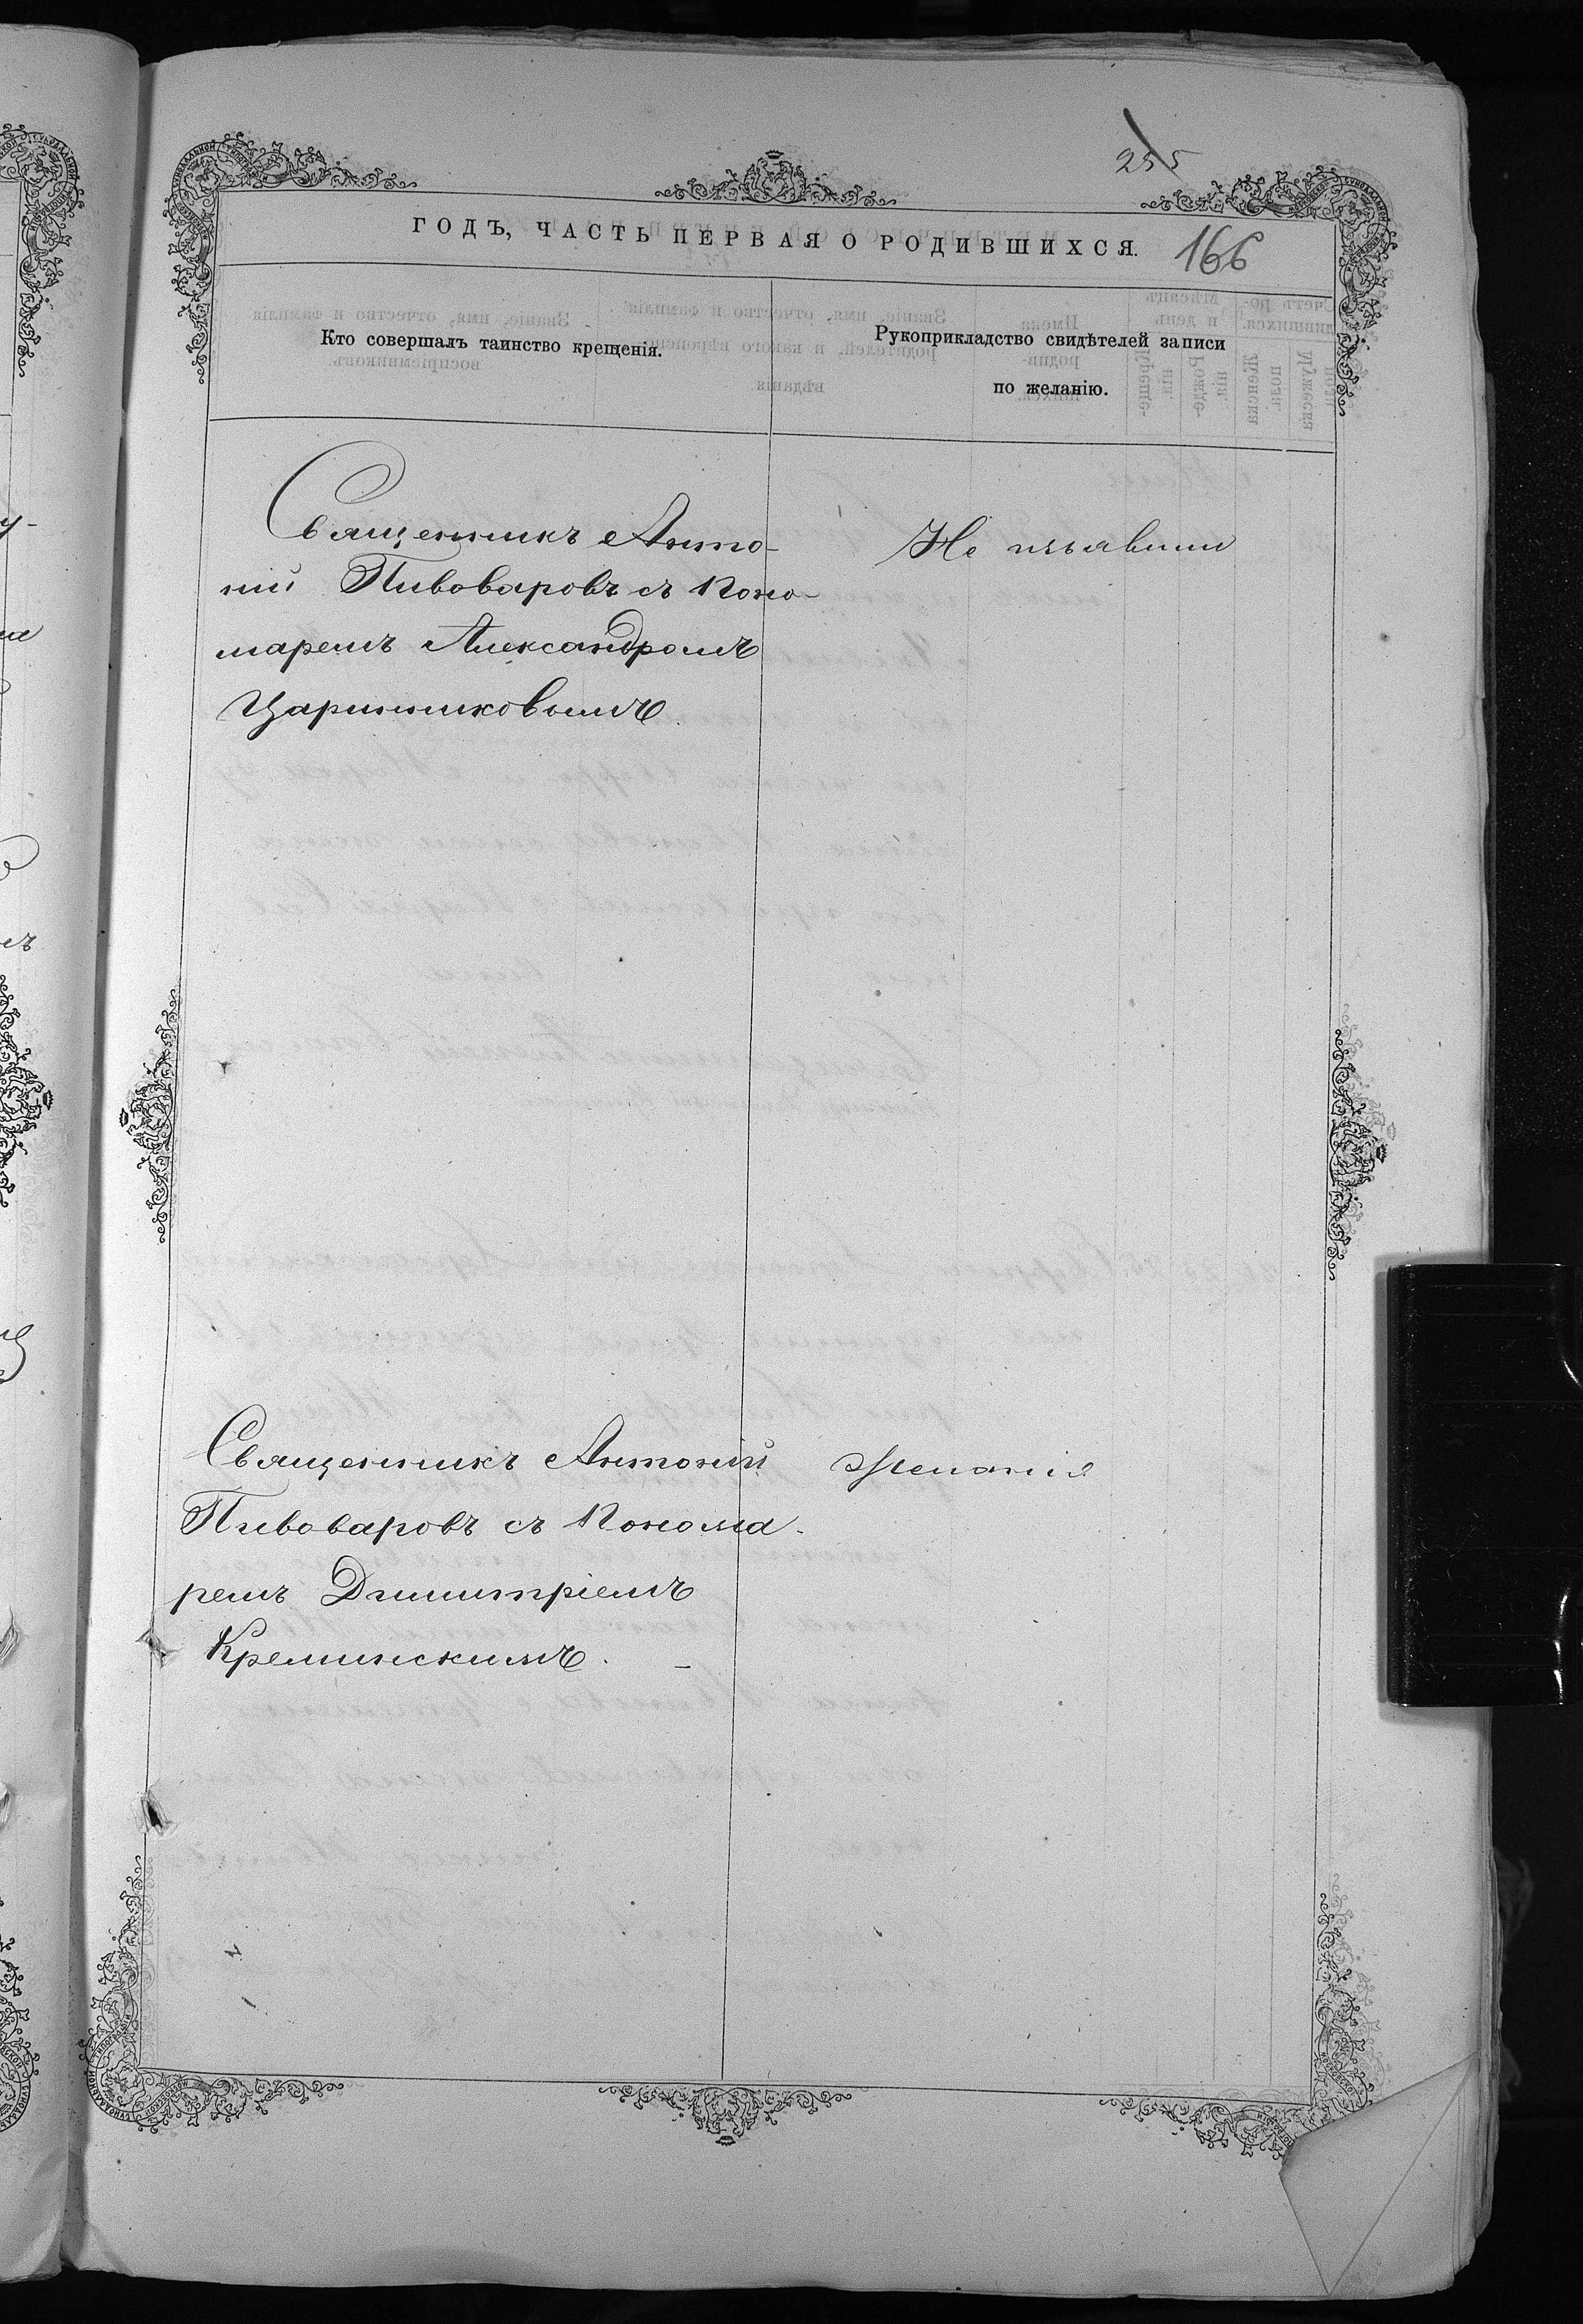 255
ГОДЪ, ЧАСТЬ ПЕРВАЯ О РОДИВШИХСЯ. 166
Кто совершалъ таинство крещенія.
Рукоприкладство свидѣтелей записи
по желанію.
Священникъ Анто-
ній Пивоваровъ съ Поно-
маремъ Александромъ
Царинниковымъ.
Не изъявили
Священникъ Антоній
Пивоваровъ съ Понома-
ремъ Димитріемъ
Кременскимъ. –
Желанія